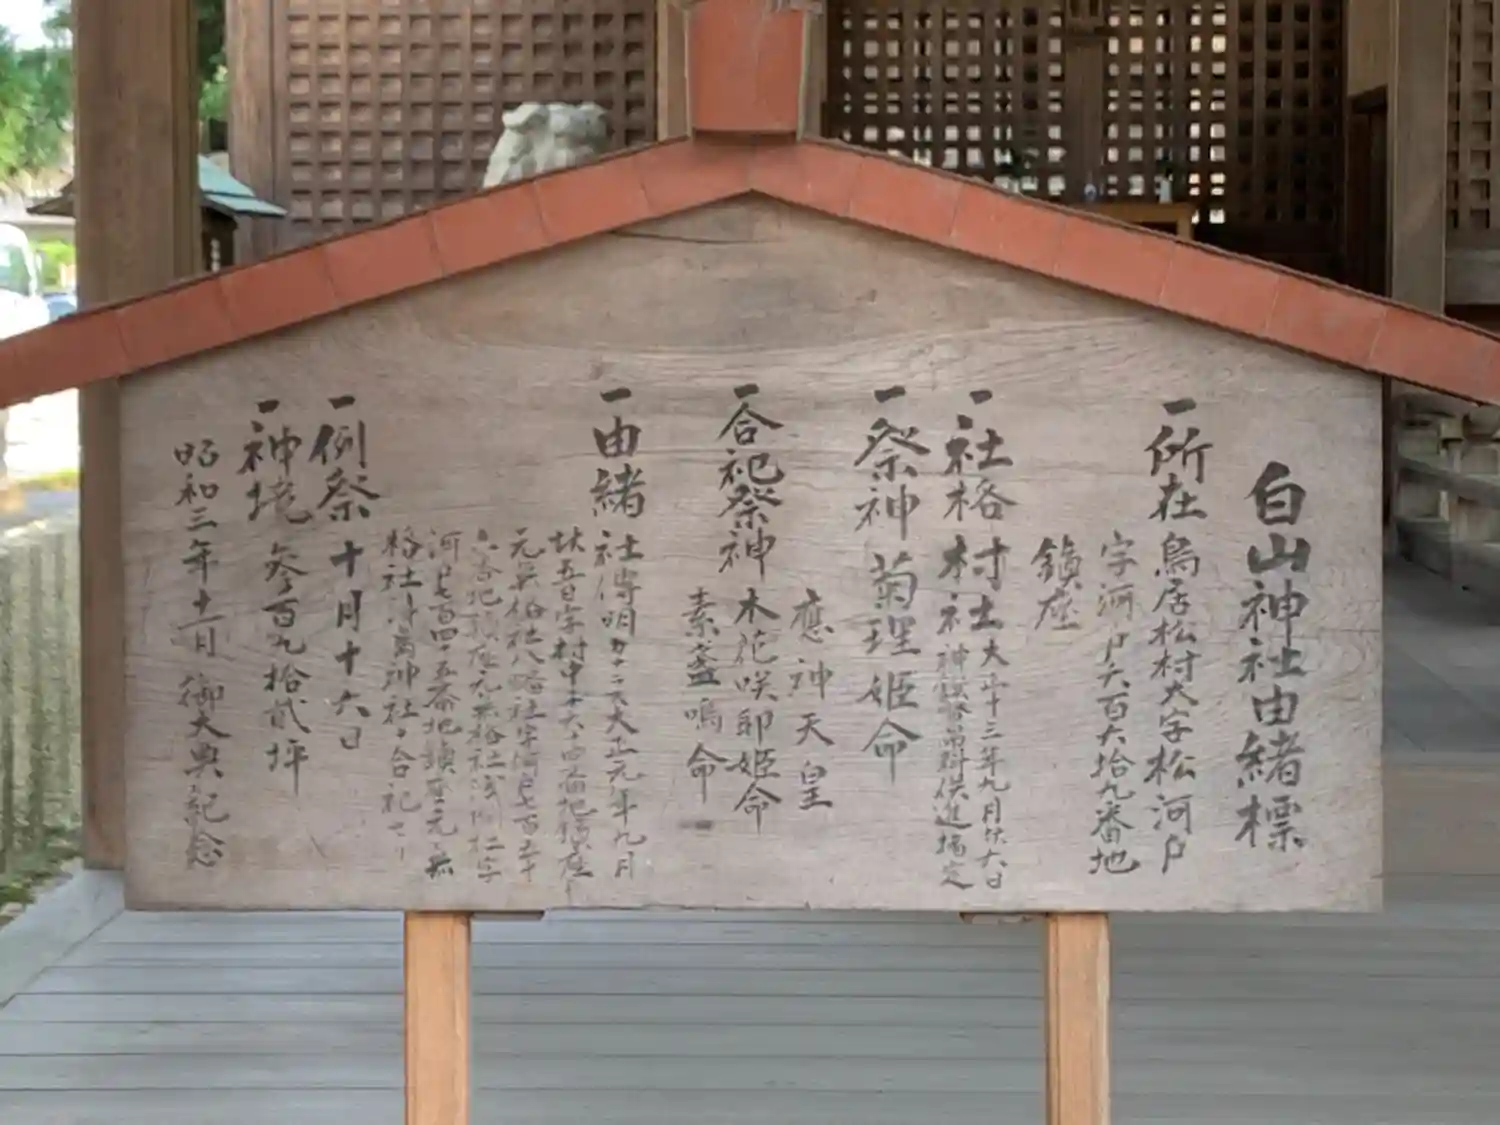 白山神社由緒標
一所在 鳥居松村大字松河戸
字河戸六百六拾九番地
鎮座
一社格 村社 大正十三年九月廿六日
神饌幣帛料供進指定
一祭神 菊理姫命
應神天皇
一合祀祭神 木花咲耶姫命
素盞嗚命
一由緒 社傳明カナラス大正元年九月
廿五日字村中
元無格社八幡社字河戸七百五十
番地鎮座元無格社浅間社字
河戸七百四十五番地鎮座元無
格社津島神社ヲ合祀セリ
一例祭 十月十六日
一神境 参百九拾貳坪
昭和三年十一月 御大典記念